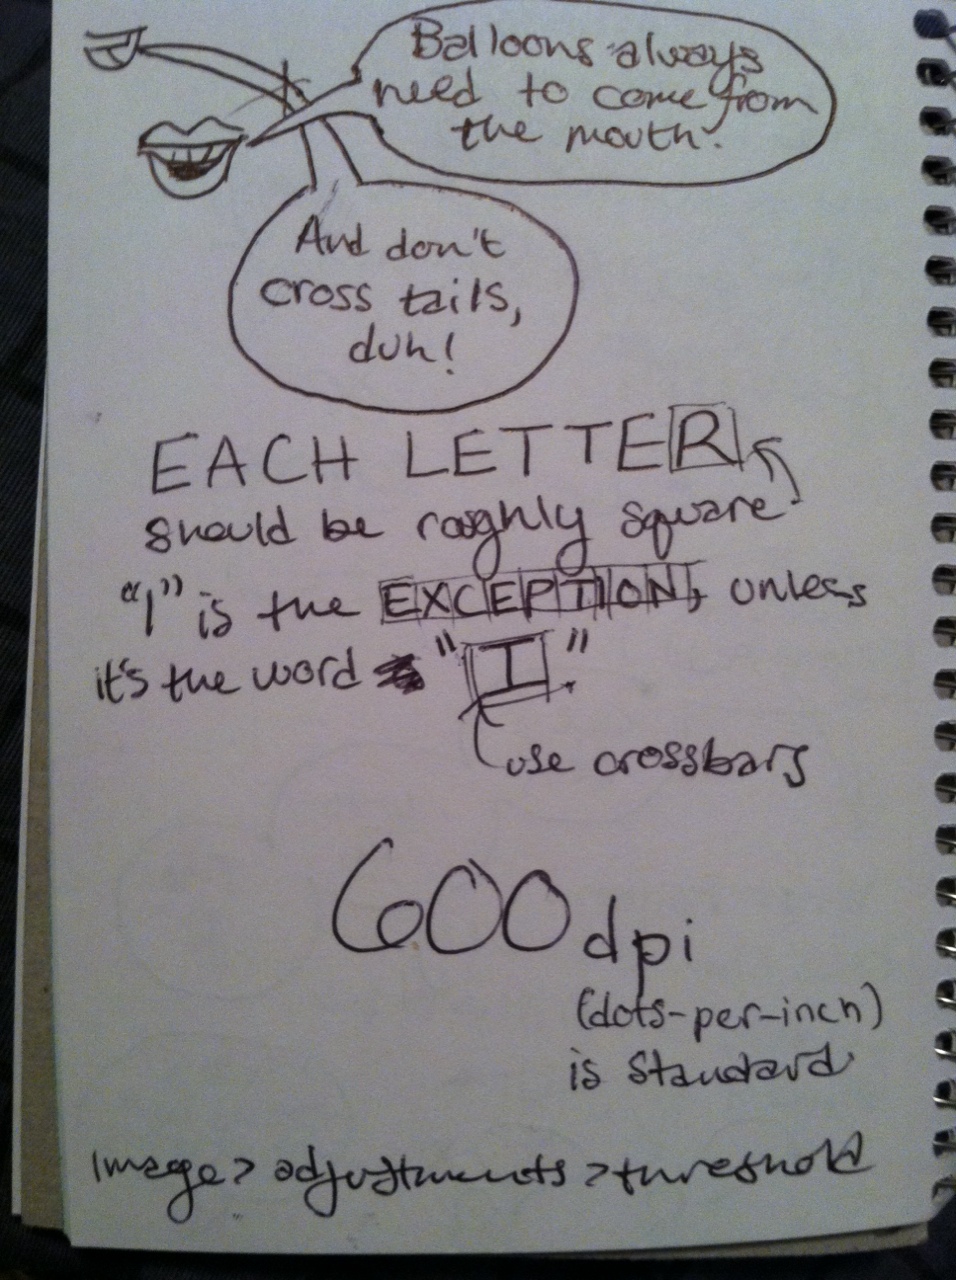 Balloons always
need to come from
the mouth.
And don't
cross tails,
duh!
EACH LETTER
should be roughly square
"I" is the EXCEPTION, unless
it's the word "I"
use crossbars
600 dpi
(dots-per-inch)
is standard
Image > adjustments > threshold